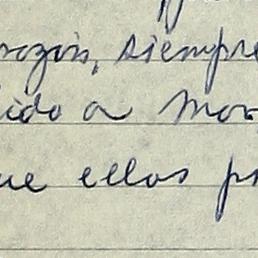 razón, siempre
ido a mor
ue ellos p